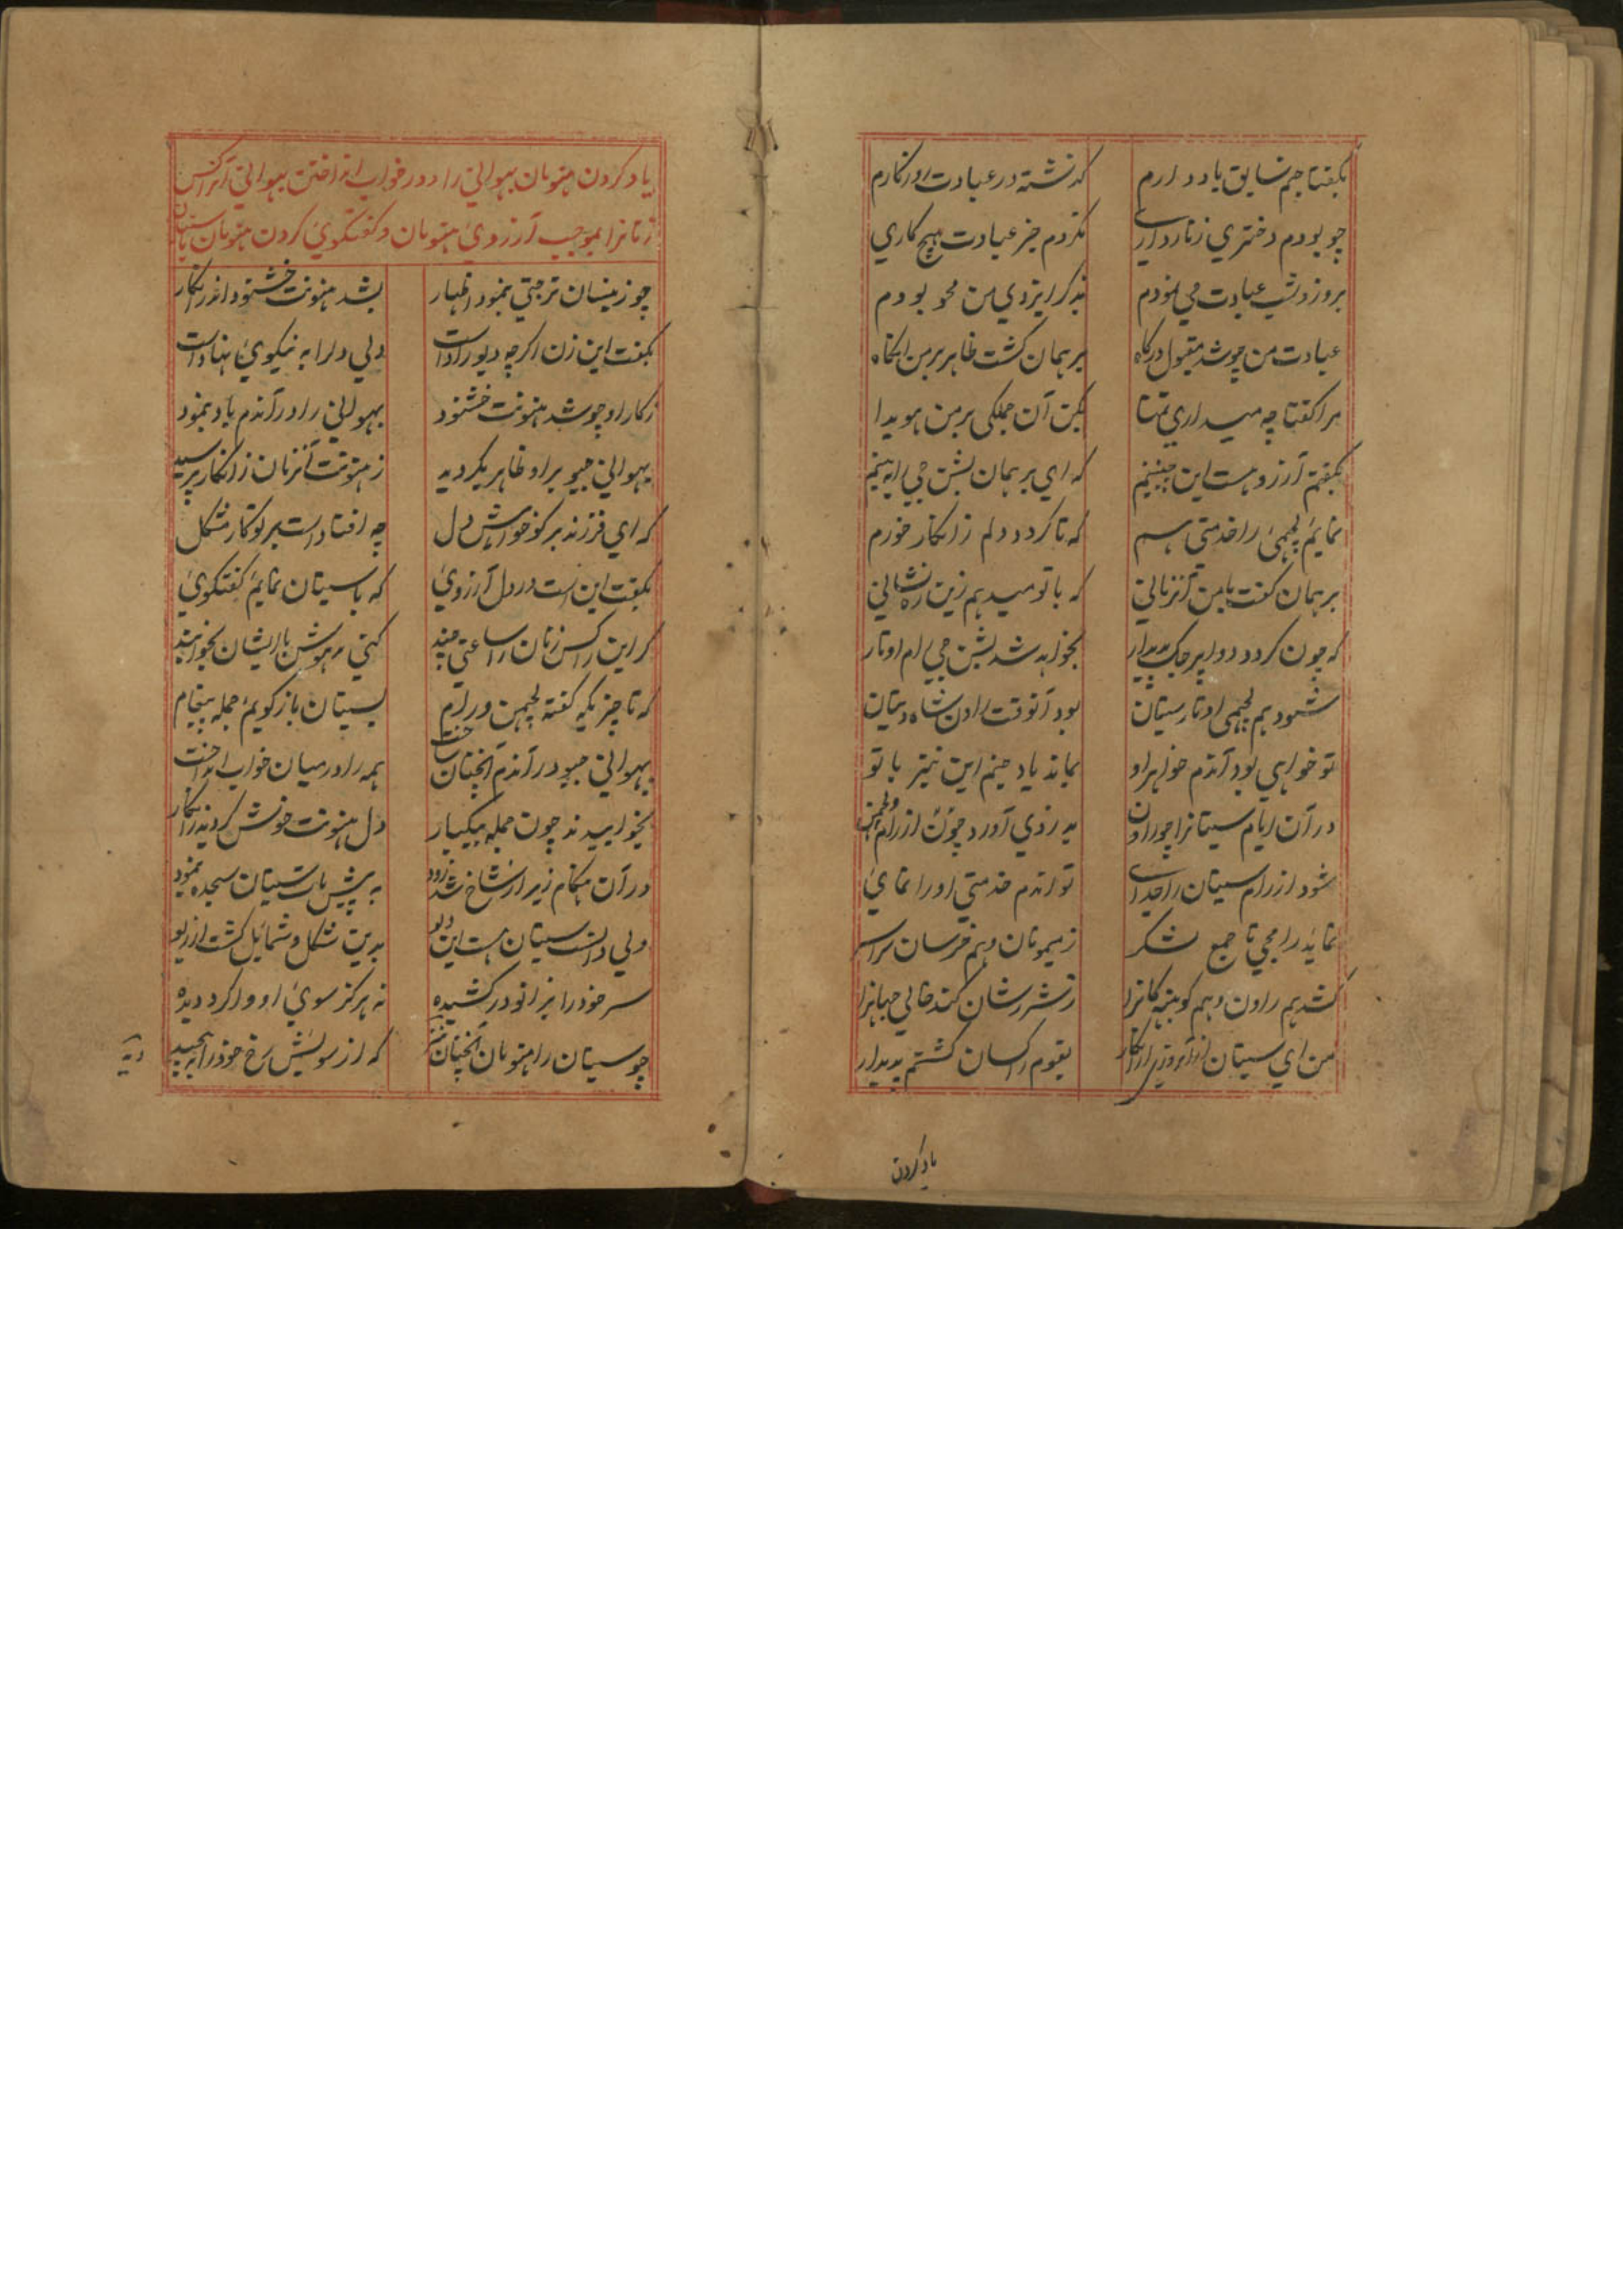 بگفتا جنم سابق یاد دارم گذشته در عبادت روزگارم
چو بودم دختری زنارداری نکردم جز عبادت هیچ کاری
بروز و شب عبادت می نمودم بذکر ایزدی من محو بودم
عبادت من چو شد مقبول درگاه برهمان گشت ظاهر بر من انگاه
مرا گفتا چه میداری تمنا بکن آن جملگی بر من هویدا
بگفتم آرزو هست این چنینم که ای برهمان بشن جی را به بینم
نمایم لچهمی را خدمتی هم که تا گردد دلم زانکار خورم
برهمان گفت با من آنزمانی که با تو میدهم زین ره نشانی
که چون گردد دواپر جگ پدیدار بخواهد شد بشن جی رام اوتار
شود هم لچهمی اوتار سیتان بود آنوقت راون شاه دیتان
تو خواهی بود آندم خواهر او بماند یاد جنم این نیز با تو
در آن ایام سیتا را چو راون به دزدی آورد چون از رام و لچمن
شود از رام سیتان را جدای تو اندم خدمتی او را نمای
نماید رامجی تا جمع لشکر ز میمونان و هم خرسان سراسر
کشد هم راون و هم کونبه کانرا ز شر شان کند خالی جهانرا
من ای سیتان از آنروزی در انکار بقوم راکسان گشتم پدیدار
یاد کردن
یاد کردن هنومان بهوانی را و در خواب انداختن بهوانی آن راکس
زنانرا بموجب آرزوی هنومان و گفتگوی کردن هنومان با سیتان
چو زینسان ترجتی بنمود اظهار بشد هنونت خشنود اندر انکار
بگفت این زن اگرچه دیو زاداست ولی دلرا به نیکوی نهاداست
ز کار او چو شد هنونت خشنود بهوانی را در آندم یاد بنمود
بهوانی جیو بر او ظاهر بگردید ز هنونت آنزمان زانکار پرسید
که ای فرزند بر گو خواهش دل چه افتاداست بر تو کار مشکل
بگفت این است در دل آرزوی که با سیتان نمایم گفتگوی
گر این راکس زنان را ساعتی چند کنی مدهوش با ایشان بخوابند
که تا چیزیکه گفته لچمن و رام بسیتان باز گویم جمله پیغام
بهوانی جیو در آندم آنچنان ساخت همه را در میان خواب انداخت
بخوابیدند چون جمله بیکبار دل هنونت خوش گردید زانکار
در آن هنگام زیر از شاخ شد زود به پیش پای سیتان سجده بنمود
ولی دانست سیتان هست این دیو بدین شکل و شمایل گشت از ریو
سر خود را بزانو در کشیده نه هرگز سوی او وا کرد دیده
چو سیتان را هنومان آنچنان دید که از سویش رخ خود را به پیچید